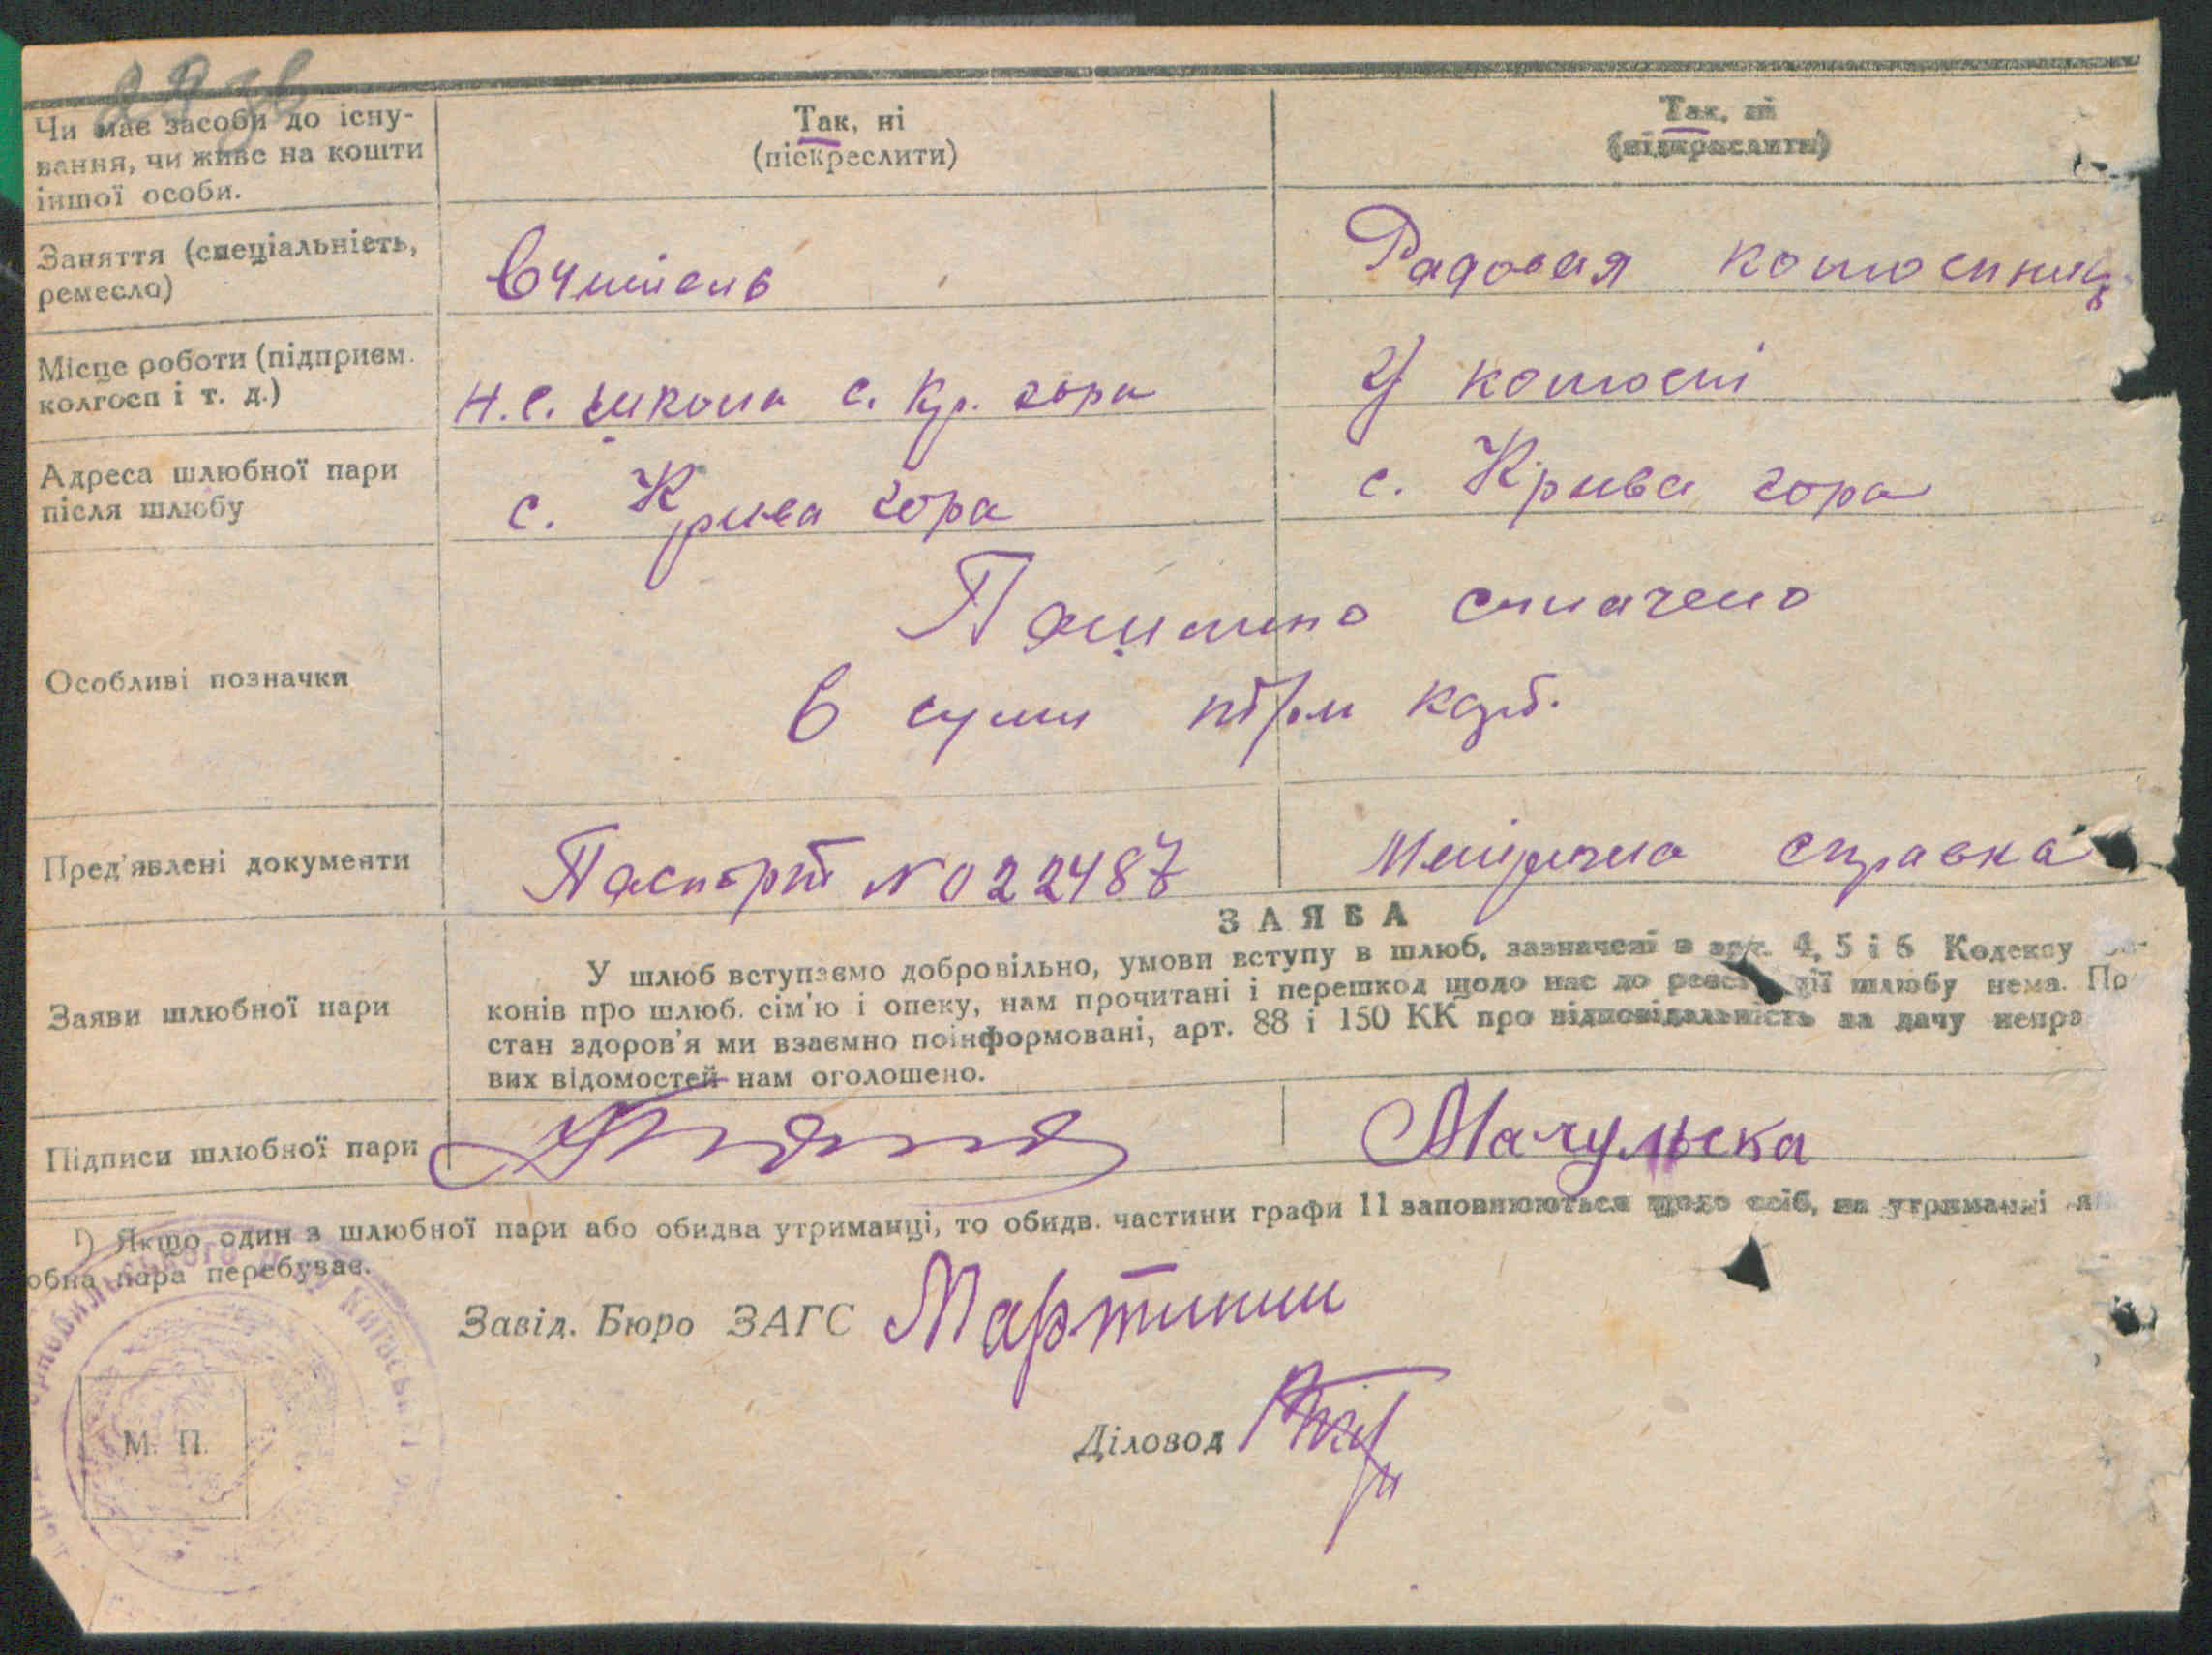 Чи має засоби до існу-
вання, чи живе на кошти
іншої особи.
Так, ні
(піскреслити)
Так, ні
(підкреслити)
Заняття (спеціальність,
ремесло)
Вчитель
Радовая
Місце роботи (підприєм.
колгосп і т. д.)
Н.С. школа с. Кр. гора
У
Адреса шлюбної пари
після шлюбу
с. Крива гора
с. Крива гора
Особливі позначки
сплачено
в сумі крб.
Пред'явлені документи
Паспорт № 022487
справка
ЗАЯВА
Заяви шлюбної пари
У шлюб вступаємо добровільно, умови вступу в шлюб, зазначені в арт. 4, 5 і 6 Кодексу
конів про шлюб. сім'ю і опеку, нам прочитані і перешкод щодо нас до шлюбу нема. По
стан здоров'я ми взаємно поінформовані, арт. 88 і 150 КК про відповідальність за дачу непра
вих відомостей нам оголошено.
Підписи шлюбної пари
Мачульска
¹) Якщо один з шлюбної пари або обидва утриманці, то обидв. частини графи 11 заповнюються щодо осіб, на утриманні я
обна пара перебуває.
Завід. Бюро ЗАГС
Діловод
М. П.